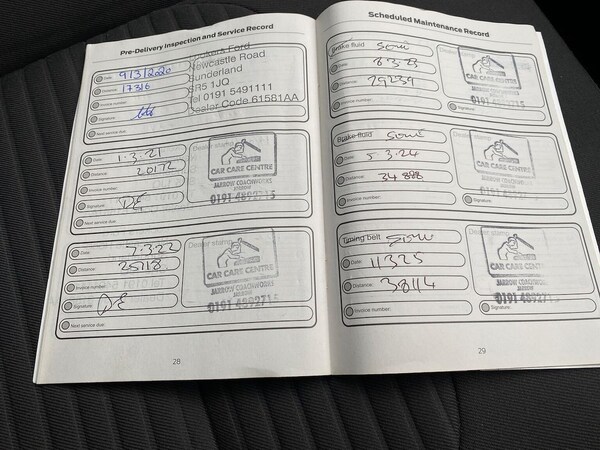 Pre-Delivery Inspection and Service Record
Date: 9/3/2020
Distance: 17316
Invoice number:
Signature:
Next service due:
Ford
Newcastle Road
Sunderland
SR5 1JQ
Tel 0191 5491111
Dealer Code 61581AA
Date: 1.3.21
Distance: 20172
Invoice number:
Signature: DE
Next service due:
Dealer stamp
CAR CARE CENTRE
JARROW COACHWORKS
JARROW
0191 4892715
Date: 7.3.22
Distance: 25718
Invoice number:
Signature: DE
Next service due:
Dealer stamp
CAR CARE CENTRE
JARROW COACHWORKS
JARROW
0191 4892715
28
Scheduled Maintenance Record
Brake fluid
Date: 8.3.23
Distance: 29239
Invoice number:
CAR CARE CENTRE
0191 4892715
Brake fluid
Date: 5.3.24
Distance: 34888
Invoice number:
Signature:
Dealer stamp
CAR CARE CENTRE
JARROW COACHWORKS
JARROW
0191 4892715
Timing belt
Date: 11325
Distance: 38114
Invoice number:
Signature:
Dealer stamp
CAR CARE CENTRE
JARROW COACHWORKS
JARROW
0191 4892715
29